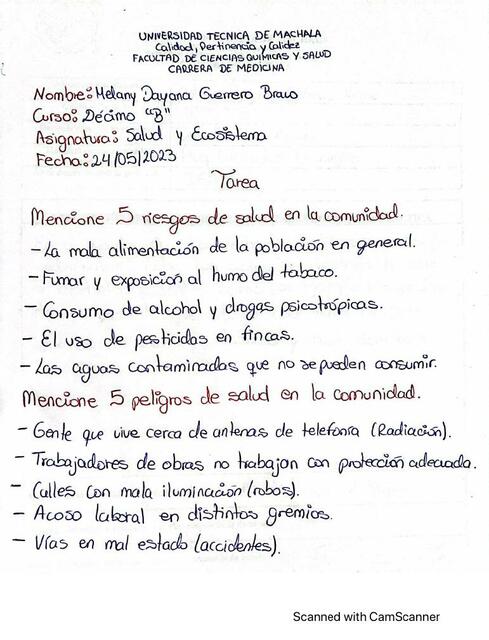 UNIVERSIDAD TECNICA DE MACHALA
Calidad, Pertinencia y Calidez
FACULTAD DE CIENCIAS QUIMICAS Y SALUD
CARRERA DE MEDICINA
Nombre: Melany Dayana Guerrero Bravo
Curso: Décimo "B"
Asignatura: Salud y Ecosistema
Fecha: 24/05/2023
Tarea
Mencione 5 riesgos de salud en la comunidad.
- La mala alimentación de la población en general.
- Fumar y exposición al humo del tabaco.
- Consumo de alcohol y drogas psicotrópicas.
- El uso de pesticidas en fincas.
- Las aguas contaminadas que no se pueden consumir.
Mencione 5 peligros de salud en la comunidad.
- Gente que vive cerca de antenas de telefonía (Radiación).
- Trabajadores de obras no trabajan con protección adecuada.
- Calles con mala iluminación (robos).
- Acoso laboral en distintos gremios.
- Vías en mal estado (accidentes).
Scanned with CamScanner